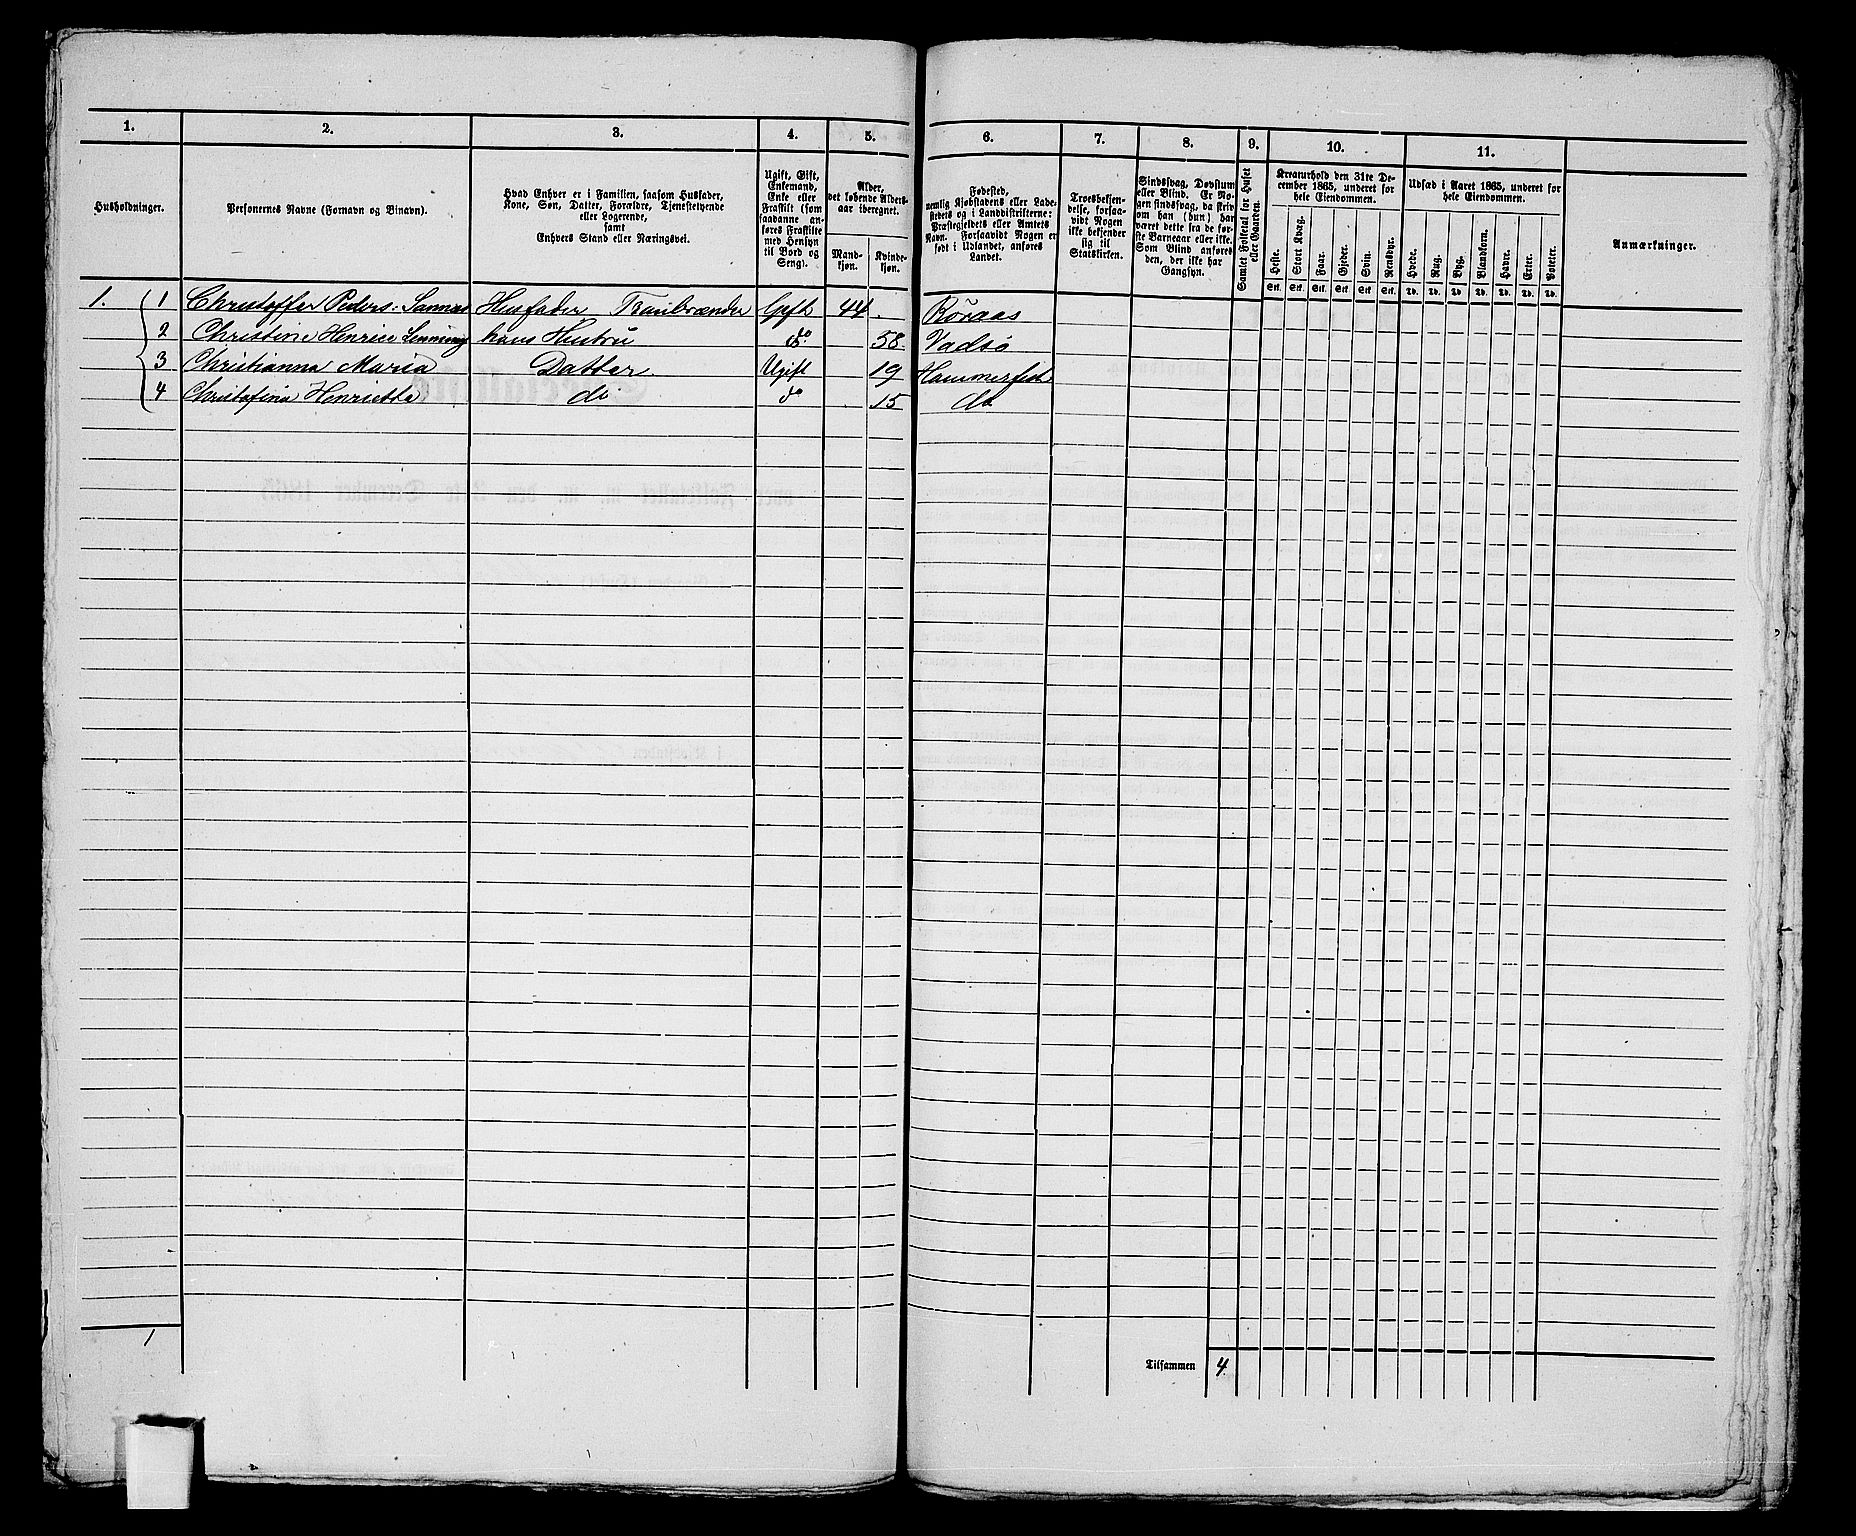 1.
2.
3.
4.
5.
6.
7.
8.
9.
10.
11.
Husholdninger.
Personernes Navne (Fornavn og Binavn).
Hvad Enhver er i Familien, saasom Husfader,
Kone, Søn, Datter, Forældre, Tjenestetyende
eller Logerende,
samt
Enhvers Stand eller Næringsvei.
Ugift, Gift,
Enkemand,
Enke eller
Fraskilt (som
saadanne an-
føres Fraskilte
med Hensyn
til Bord og
Seng).
Alder,
det løbende Alders-
aar iberegnet.
Mand-
kjøn.
Kvinde-
kjøn.
Fødested,
nemlig Kjøbstadens eller Lade-
stedets og i Landdistrikterne:
Præstegjeldets eller Amtets
Navn. Forsaavidt Nogen er
født i Udlandet, anføres
Landet.
Troesbekjen-
delse, forsaa-
vidt Nogen
ikke bekjender
sig til
Statskirken.
Sindssvag, Døvstum
eller Blind. Er No-
gen sindssvag, da skriv
om han (hun) har
været dette fra de før-
ste Barneaar eller ikke.
Som Blind anføres
den, der ikke har
Gangsyn.
Samlet Folketal for Huset
eller Gaarden.
Kreaturhold den 31te De-
cember 1865, underet for
hele Eiendommen.
Heste.
Stort Kvæg.
Faar.
Gjeder.
Svin.
Rensdyr.
Stk. Stk. Stk. Stk. Stk. Stk.
Udsæd i Aaret 1865, underet for
hele Eiendommen.
Hvede.
Rug.
Byg.
Blandkorn.
Havre.
Erter.
Poteter.
Td. Td. Td. Td. Td. Td. Td.
Anmærkninger.
1. 1 Christoffer Peders: Sannæs Husfader Gift 44 . Röraas
2 Christine Henrice hans Hustru do. 58 Vadsø
3 Christianna Maria Datter Ugift 19 Hammerfest
4 Christofina Henrietta do do 15 do
1
Tilsammen 4.